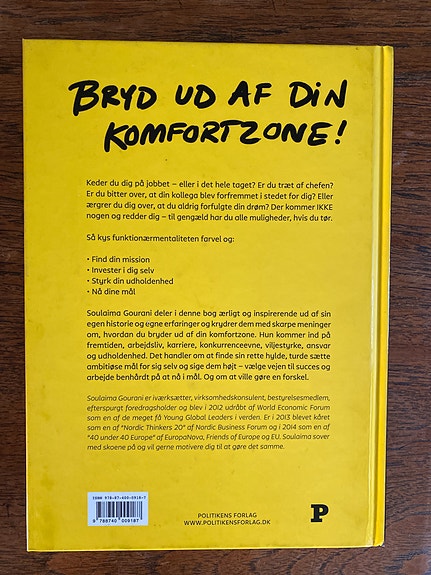 BRYD UD AF DIN
KOMFORTZONE!
Keder du dig på jobbet – eller i det hele taget? Er du træt af chefen?
Er du bitter over, at din kollega blev forfremmet i stedet for dig? Eller
ærgrer du dig over, at du aldrig forfulgte din drøm? Der kommer IKKE
nogen og redder dig – til gengæld har du alle muligheder, hvis du tør.
Så kys funktionærmentaliteten farvel og:
• Find din mission
• Invester i dig selv
• Styrk din udholdenhed
• Nå dine mål
Soulaima Gourani deler i denne bog ærligt og inspirerende ud af sin
egen historie og egne erfaringer og krydrer dem med skarpe meninger
om, hvordan du bryder ud af din komfortzone. Hun kommer ind på
fremtiden, arbejdsliv, karriere, konkurrenceevne, viljestyrke, ansvar
og udholdenhed. Det handler om at finde sin rette hylde, turde sætte
ambitiøse mål for sig selv og sige dem højt – vælge vejen til succes og
arbejde benhårdt på at nå i mål. Og om at ville gøre en forskel.
Soulaima Gourani er iværksætter, virksomhedskonsulent, bestyrelsesmedlem,
efterspurgt foredragsholder og blev i 2012 udråbt af World Economic Forum
som en af de meget få Young Global Leaders i verden. Er i 2013 blevet kåret
som en af "Nordic Thinkers 20" af Nordic Business Forum og i 2014 som en af
"40 under 40 Europe" af EuropaNova, Friends of Europe og EU. Soulaima sover
med skoene på og vil gerne motivere dig til at gøre det samme.
ISBN 978-87-400-0918-7
9 788740 009187
POLITIKENS FORLAG
WWW.POLITIKENSFORLAG.DK
P